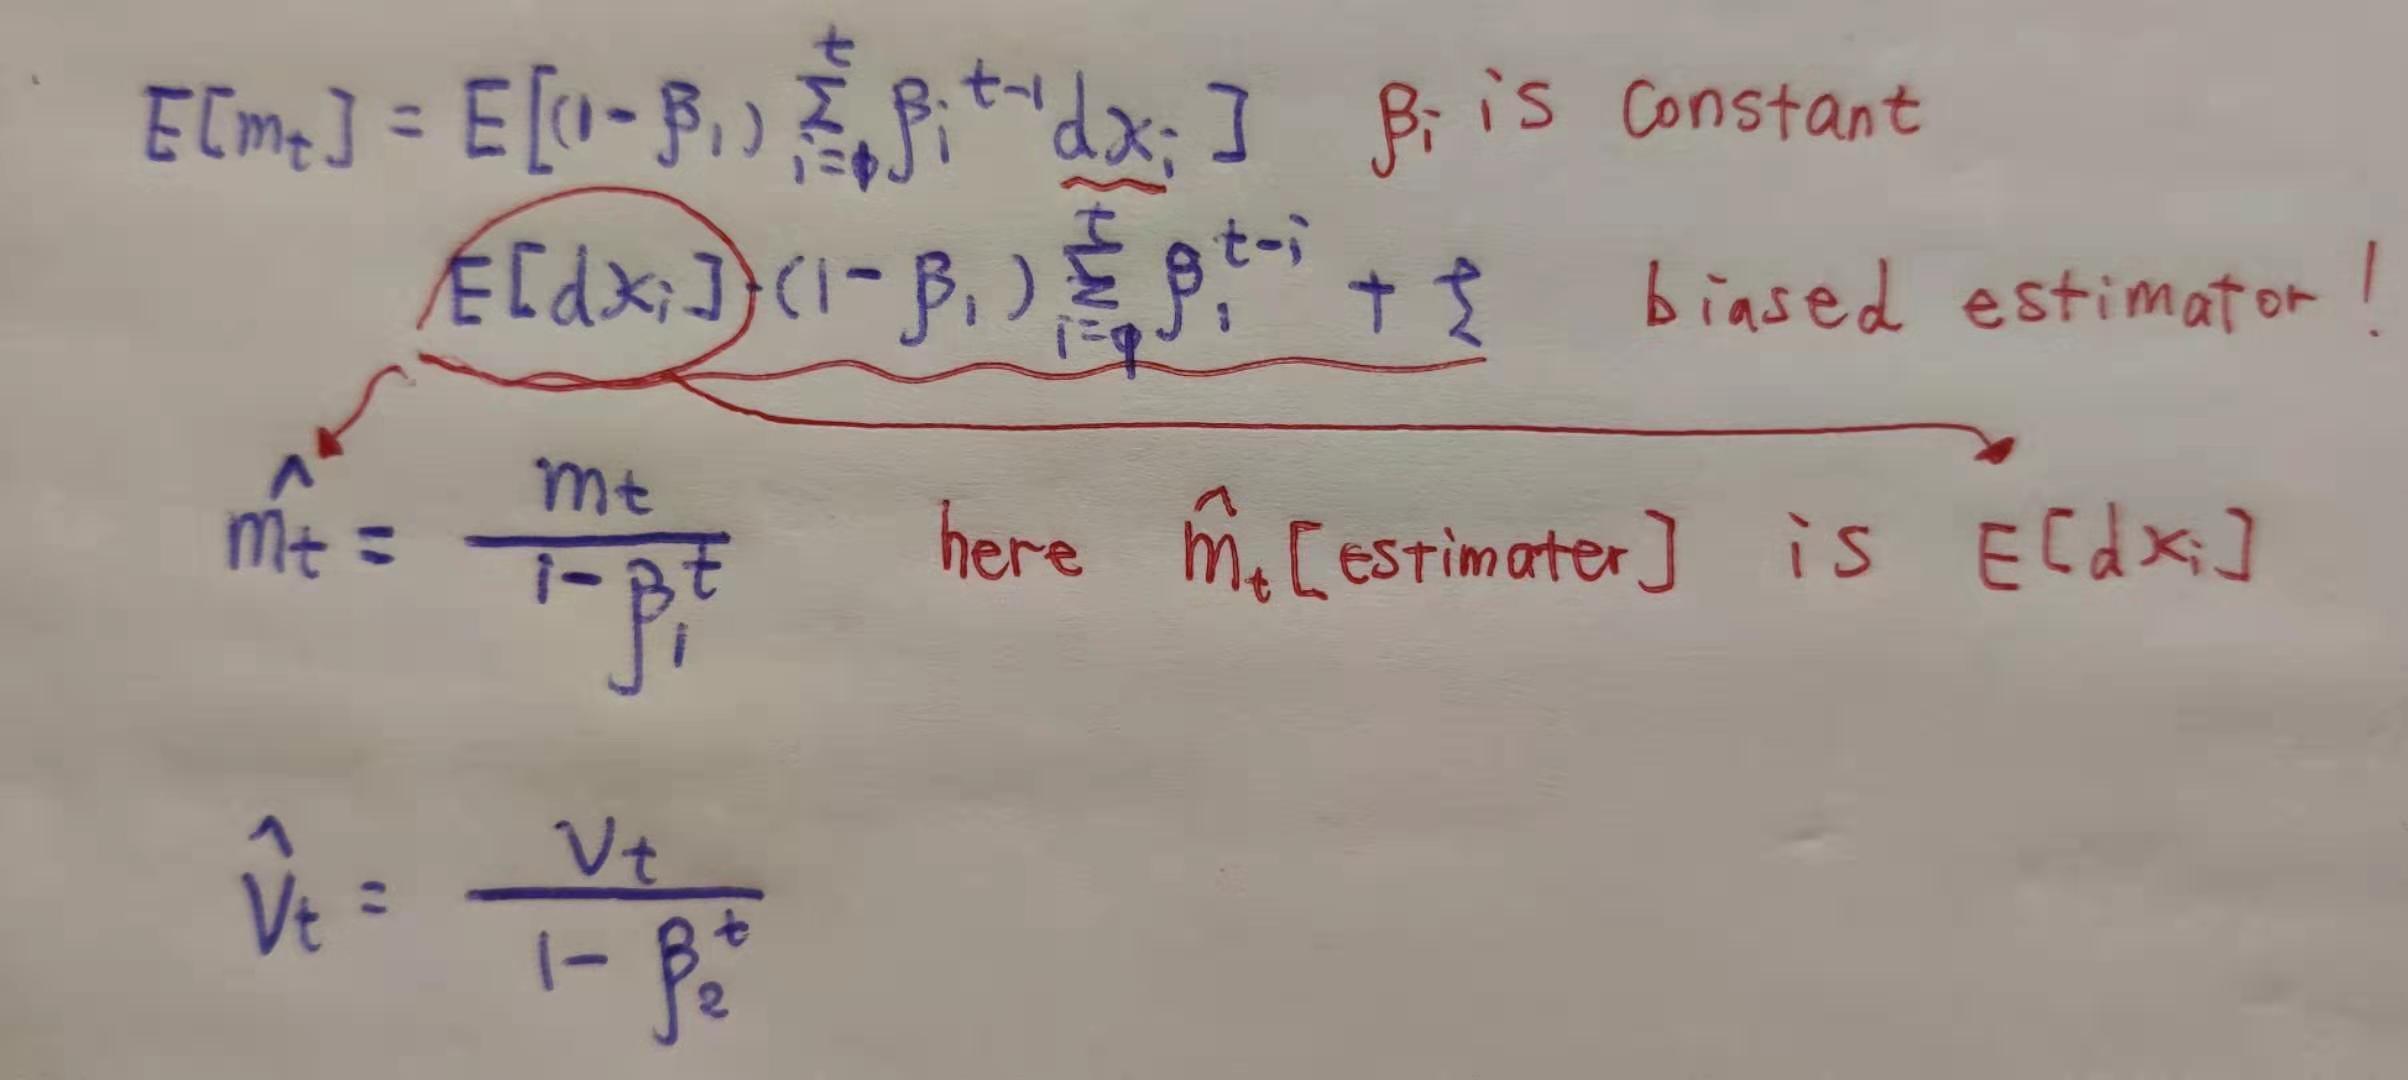 E[m_t] = E[(1-β_1) Σ_{i=1}^{t} β_i^{t-1} dx_i] β_i is constant
E[dx_i]·(1-β_1) Σ_{i=1}^{t} β_1^{t-i} + ξ biased estimator!
m̂_t = m_t / (1-β_1^t) here m̂_t [estimater] is E[dx_i]
v̂_t = v_t / (1-β_2^t)